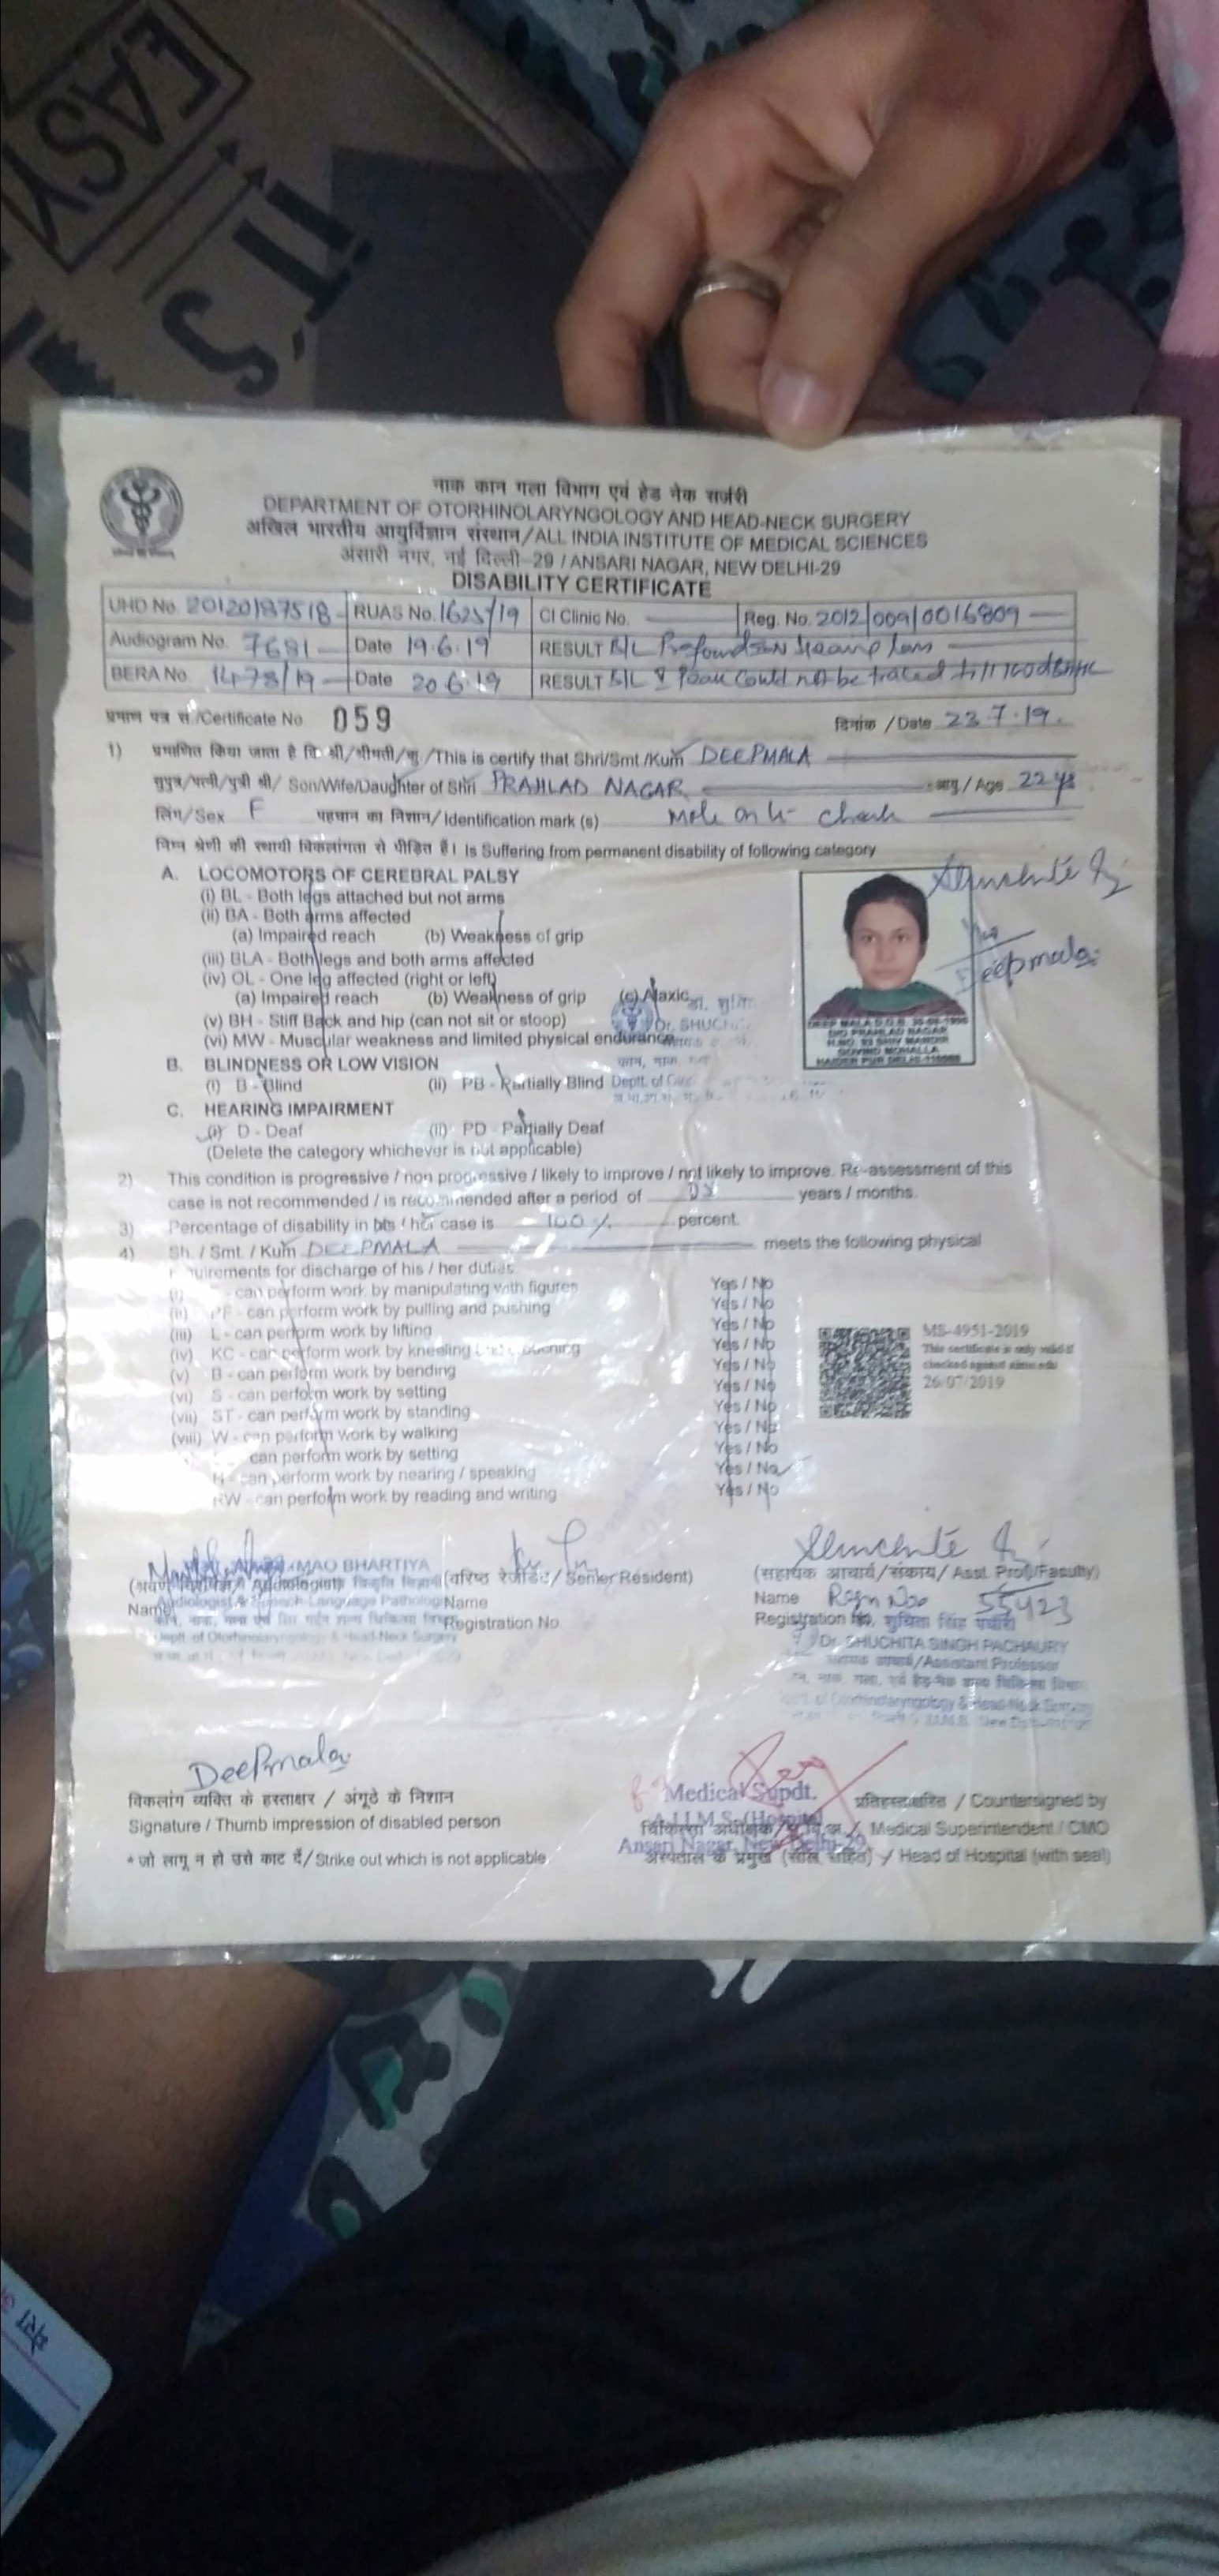 EASY
IT'S
नाक कान गला विभाग एवं हेड नेक सर्जरी
DEPARTMENT OF OTORHINOLARYNGOLOGY AND HEAD-NECK SURGERY
अखिल भारतीय आयुर्विज्ञान संस्थान/ALL INDIA INSTITUTE OF MEDICAL SCIENCES
अंसारी नगर, नई दिल्ली-29 / ANSARI NAGAR, NEW DELHI-29
DISABILITY CERTIFICATE
UHD No. 20120187518 RUAS No. 1625/19 CI Clinic No. Reg. No. 2012/009/0016809
Audiogram No. 7681 Date 19.6.19 RESULT B/L Profound SN Hearing Loss
BERA No 1478/19 Date 20.6.19 RESULT B/L Peak could not be traced till
प्रमाण पत्र सं./Certificate No. 059 दिनांक / Date 23.7.19.
1) प्रमाणित किया जाता है कि श्री/श्रीमती/कु./This is certify that Shri/Smt /Kum DEEPMALA
सुपुत्र/पत्नी/पुत्री श्री/ Son/Wife/Daughter of Shri PRAHLAD NAGAR आयु / Age 22 yrs
लिंग/Sex F पहचान का निशान/ Identification mark (s) Mole on cheek
निम्न श्रेणी की स्थायी विकलांगता से पीड़ित है। Is Suffering from permanent disability of following category
A. LOCOMOTORS OF CEREBRAL PALSY
(i) BL - Both legs attached but not arms
(ii) BA - Both arms affected
(a) Impaired reach (b) Weakness of grip
(iii) BLA - Both legs and both arms affected
(iv) OL - One leg affected (right or left)
(a) Impaired reach (b) Weakness of grip (c) Ataxic
(v) BH - Stiff Back and hip (can not sit or stoop)
(vi) MW - Muscular weakness and limited physical endurance
Deepmala
DEEP MALA D.O.B.
D/O PRAHLAD NAGAR
H.NO. 93 SHIV MANDIR
GOVIND MOHALLA
HAIDER PUR DELHI-110088
Dr. SHUCHI
B. BLINDNESS OR LOW VISION
(i) B - Blind (ii) PB - Partially Blind
Deptt. of
C. HEARING IMPAIRMENT
(i) D - Deaf (ii) PD - Partially Deaf
(Delete the category whichever is not applicable)
2) This condition is progressive / non progressive / likely to improve / not likely to improve. Re-assessment of this
case is not recommended / is recommended after a period of 05 years / months.
3) Percentage of disability in his / her case is 100 % percent.
4) Sh. / Smt. / Kum DEEPMALA meets the following physical
requirements for discharge of his / her duties
can perform work by manipulating with figures Yes / No
(ii) PF - can perform work by pulling and pushing Yes / No
(iii) L - can perform work by lifting Yes / No
(iv) KC - can perform work by kneeling Yes / No
(v) B - can perform work by bending Yes / No
(vi) S - can perform work by setting Yes / No
(vii) ST - can perform work by standing Yes / No
(viii) W - can perform work by walking Yes / No
can perform work by setting Yes / No
H - can perform work by hearing / speaking Yes / No
RW - can perform work by reading and writing Yes / No
MS-4951-2019
This certificate is only valid if
checked against
26/07/2019
MAO BHARTIYA
Audiologist (वरिष्ठ रेजीडेंट / Senior Resident) (सहायक आचार्य/संकाय/ Asst. Prof/Faculty)
Name Name Name Regn No 55423
Audiologist & Speech Language Pathologist
Registration No Registration No. सुचिता सिंह पचौरी
Deptt. of Otorhinolaryngology & Head-Neck Surgery
Dr. SHUCHITA SINGH PACHAURY
सहायक आचार्य/Assistant Professor
Deptt. of Otorhinolaryngology & Head-Neck Surgery
A.I.I.M.S. New Delhi
Deepmala
विकलांग व्यक्ति के हस्ताक्षर / अंगूठे के निशान
Signature / Thumb impression of disabled person
* जो लागू न हो उसे काट दें/ Strike out which is not applicable
Medical Supdt. प्रतिहस्ताक्षरित / Countersigned by
A.I.I.M.S. (Hospital
चिकित्सा अधीक्षक / Medical Superintendent / CMO
Ansari Nagar, New Delhi-29
अस्पताल के प्रमुख (सील सहित) / Head of Hospital (with seal)